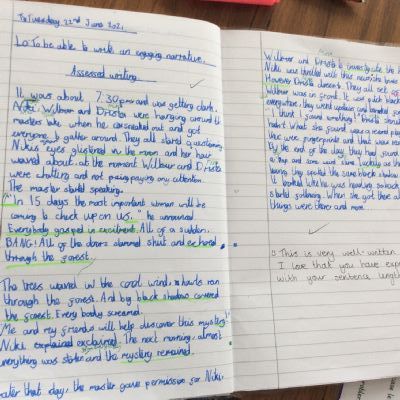 Tuesday 22nd June 2021
L.O: To be able to write an engaging narrative.
Assessed writing
It was about 7.30pm and was getting dark.
Niki, Wilbur and were hanging around the
masters lake when he and got
everyone to gather around. They all started questioning.
Nikis eyes glistened in the moon and her hair
waved about. at the moment Wilbur and
were chatting and not paying any attention.
The master started speaking.
"In 15 days the most important woman will be
coming to check up on us," he announced.
Everybody gasped in excitment. All of a sudden,
BANG! All of the doors slammed shut and echoed
through the forest.
The trees waved in the cool wind, howls ran
through the forest. And big black shadow covered
the forest. Every body screamed.
"Me and my friends will help discover this mystery!"
Niki explained. The next morning, almost
everything was stolen and the mystery remained.
later that day, the master gave permission for Niki,
Wilbur and to investigate the
Niki was thrilled with this
However They all set
Wilbur was in front. It was pitch black
everywhere, they went upstairs and
"I think I found something"
hadn't what she found was a
was fingerprint and that was
By the end of the day they had found
a and some Luckily as they
leaving they spotted the same black shadow
It looked like he was heading so
started following. When she got there all
things were there and more.
This is very well-written
I love that you have
with your sentence length